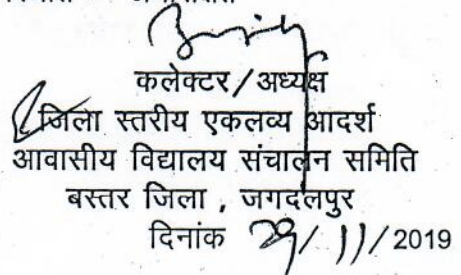 कलेक्टर/अध्यक्ष
जिला स्तरीय एकलव्य आदर्श
आवासीय विद्यालय संचालन समिति
बस्तर जिला , जगदलपुर
दिनांक 29/11/2019